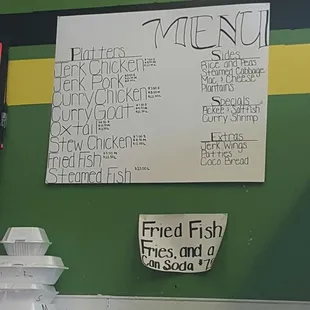 MENU
Platters
Jerk Chicken
Jerk Pork
Curry Chicken
Curry Goat
Oxtail
Stew Chicken
Fried Fish
Steamed Fish
Sides
Rice and Peas
Steamed Cabbage
Mac & Cheese
Plantains
Specials
Ackee & Saltfish
Curry Shrimp
Extras
Jerk Wings
Patties
Coco Bread
Fried Fish
Fries, and a
Can Soda